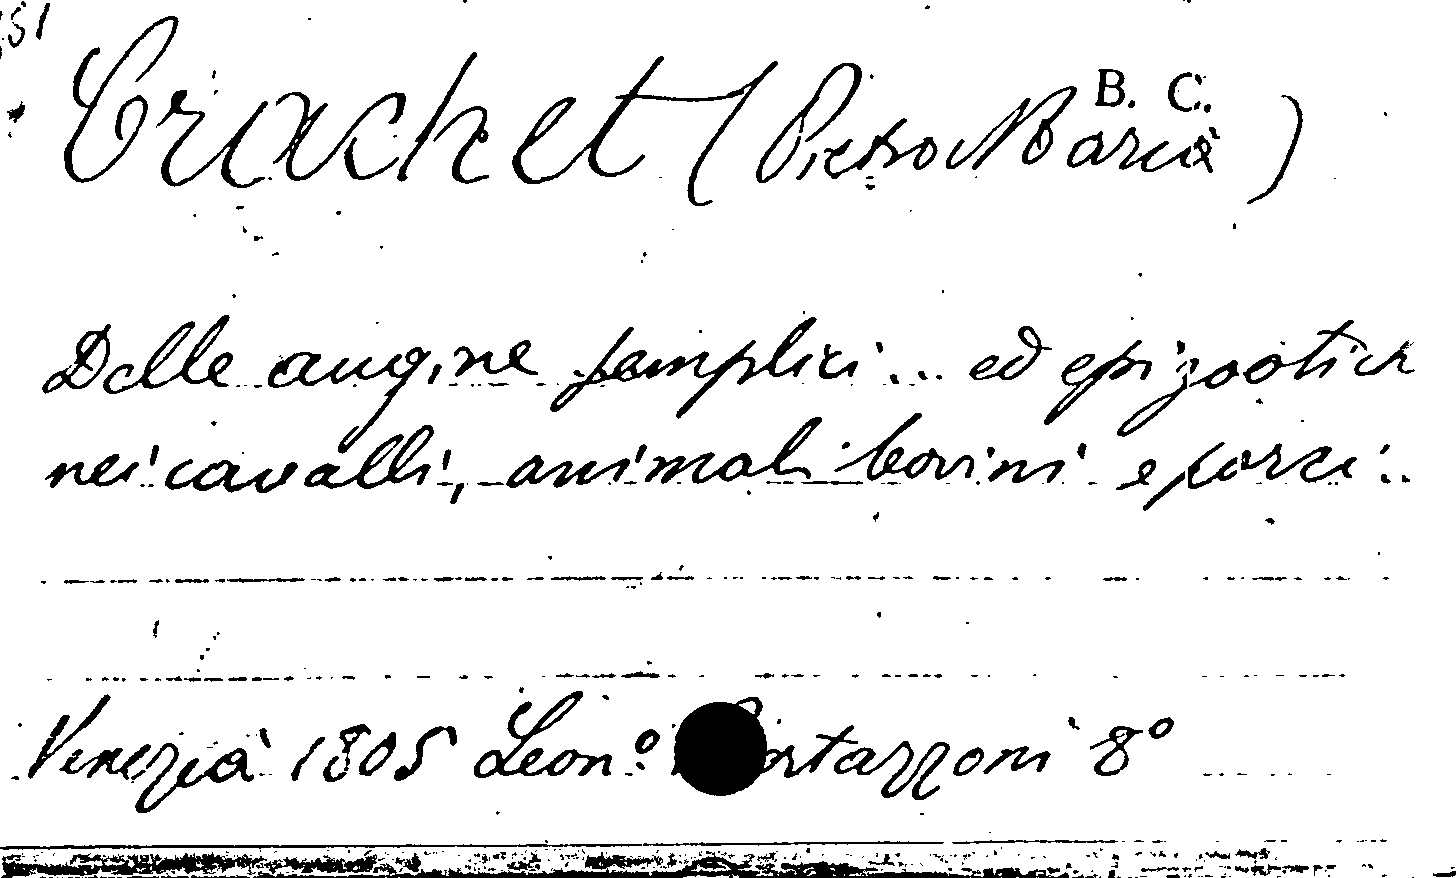 51
B. C.
Crachet (Pietro Maria)
Delle angine semplici... ed epizootich
nei cavalli, animali bovini e porci...
Venezia 1805 Leon.º 8º